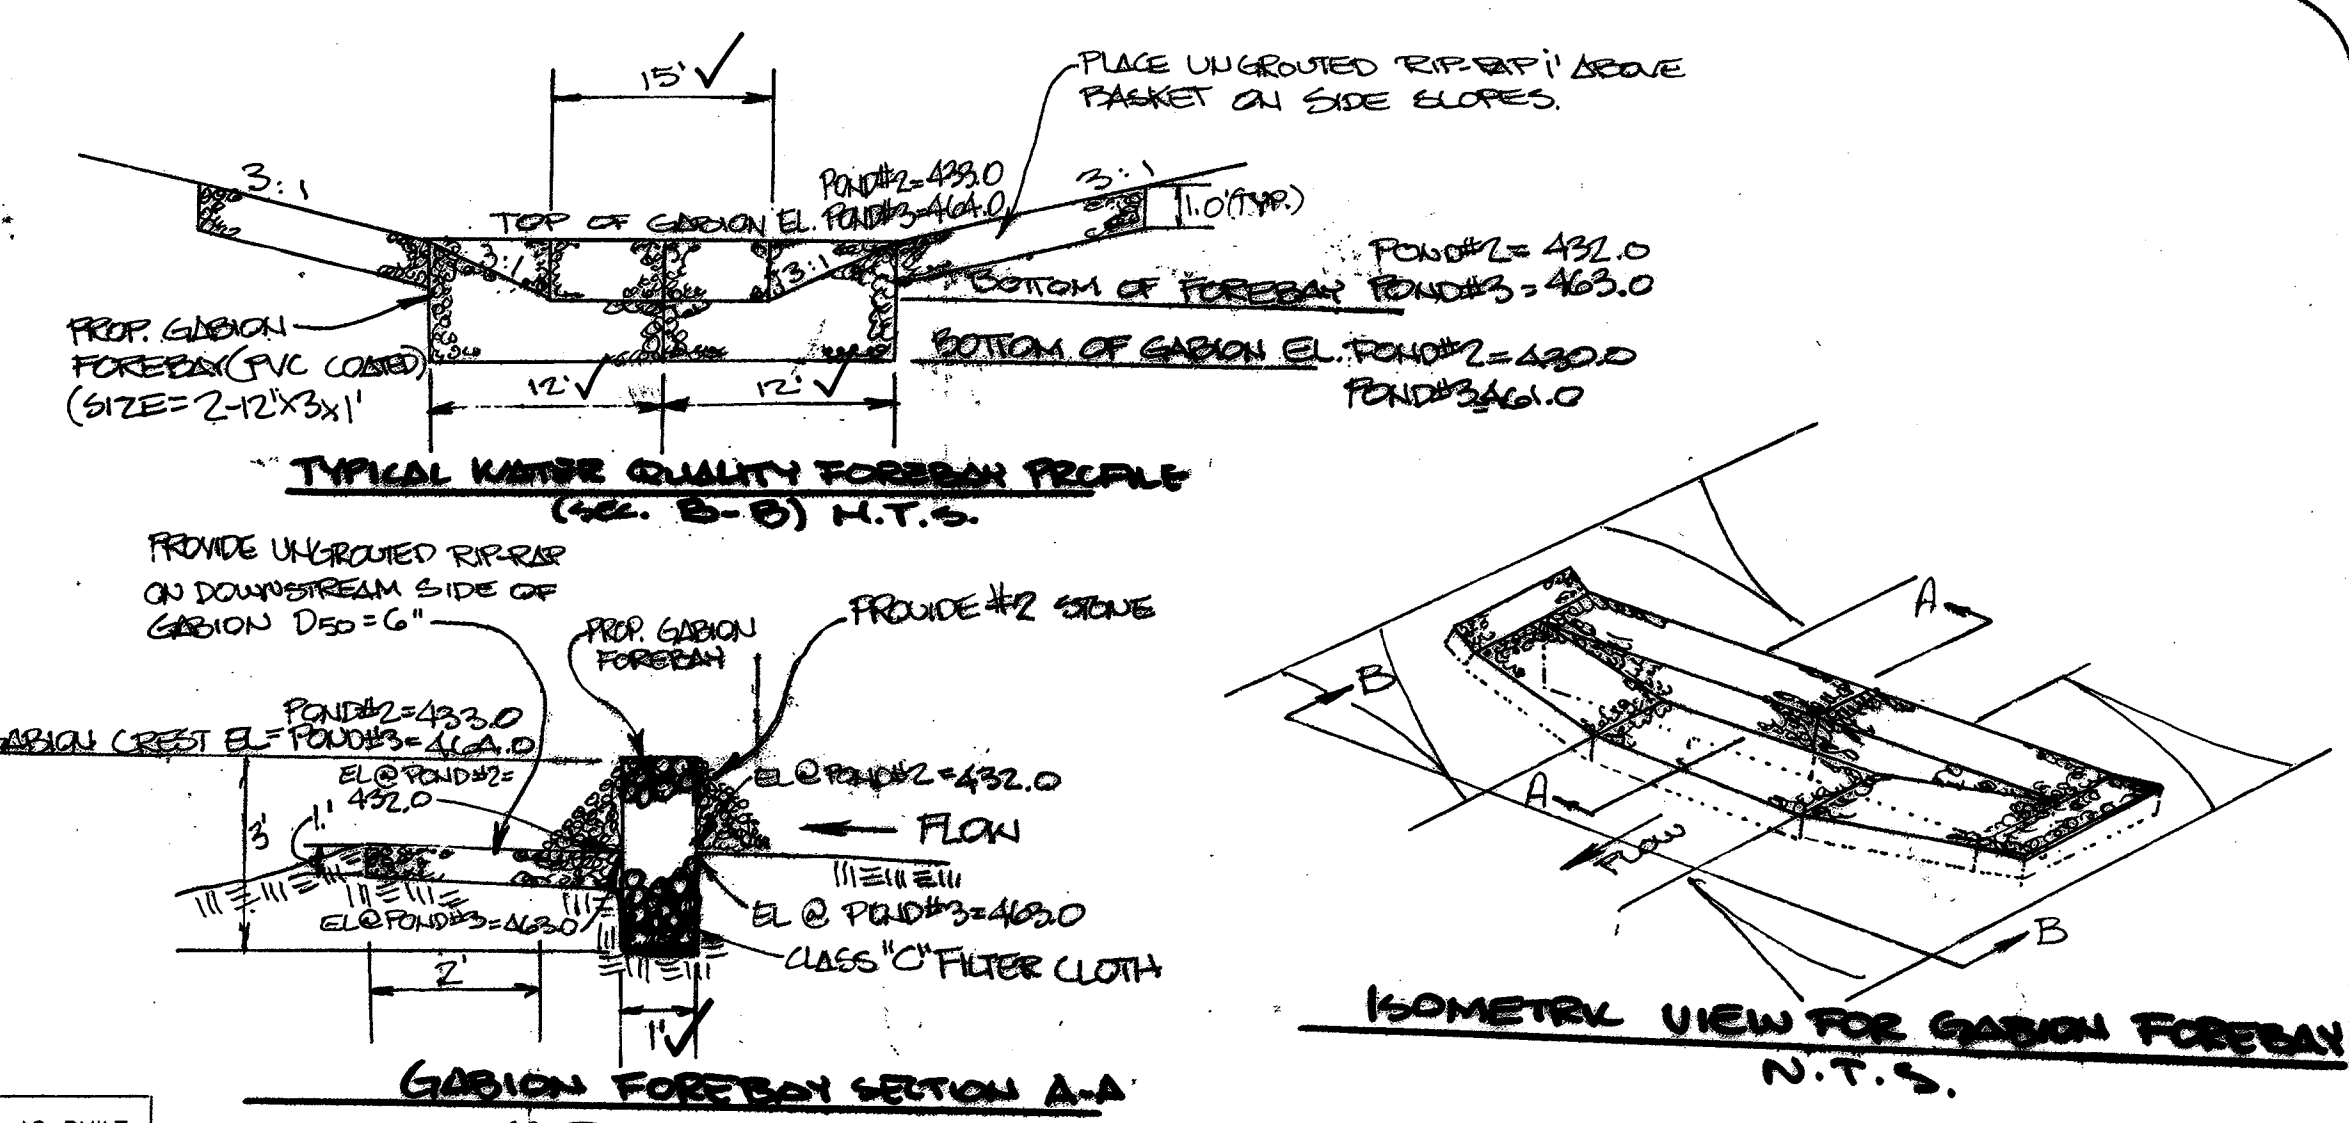 15'
PLACE UNGROUTED RIP-RAP 1' ABOVE
BASKET ON SIDE SLOPES.
3:1
POND#2=433.0
3:1
TOP OF GABION EL. POND#3=464.0
1.0'(TYP.)
3:1
3:1
POND#2=432.0
BOTTOM OF FOREBAY POND#3=463.0
PROP. GABION
FOREBAY(PVC COATED)
(SIZE=2-12'X3X1'
BOTTOM OF GABION EL. POND#2=430.0
POND#3=461.0
12'
12'
TYPICAL WATER QUALITY FOREBAY PROFILE
(SEC. B-B) N.T.S.
PROVIDE UNGROUTED RIP-RAP
ON DOWNSTREAM SIDE OF
GABION D50=6"
PROP. GABION
FOREBAY
PROVIDE #2 STONE
POND#2=433.0
GABION CREST EL=POND#3=464.0
EL@POND#2=
432.0
EL@POND#2=432.0
3'
1'
FLOW
EL@POND#3=463.0
EL @ POND#3=463.0
CLASS "C" FILTER CLOTH
2'
1'
GABION FOREBAY SECTION A-A
A
B
A
FLOW
B
ISOMETRIC VIEW FOR GABION FOREBAY
N.T.S.